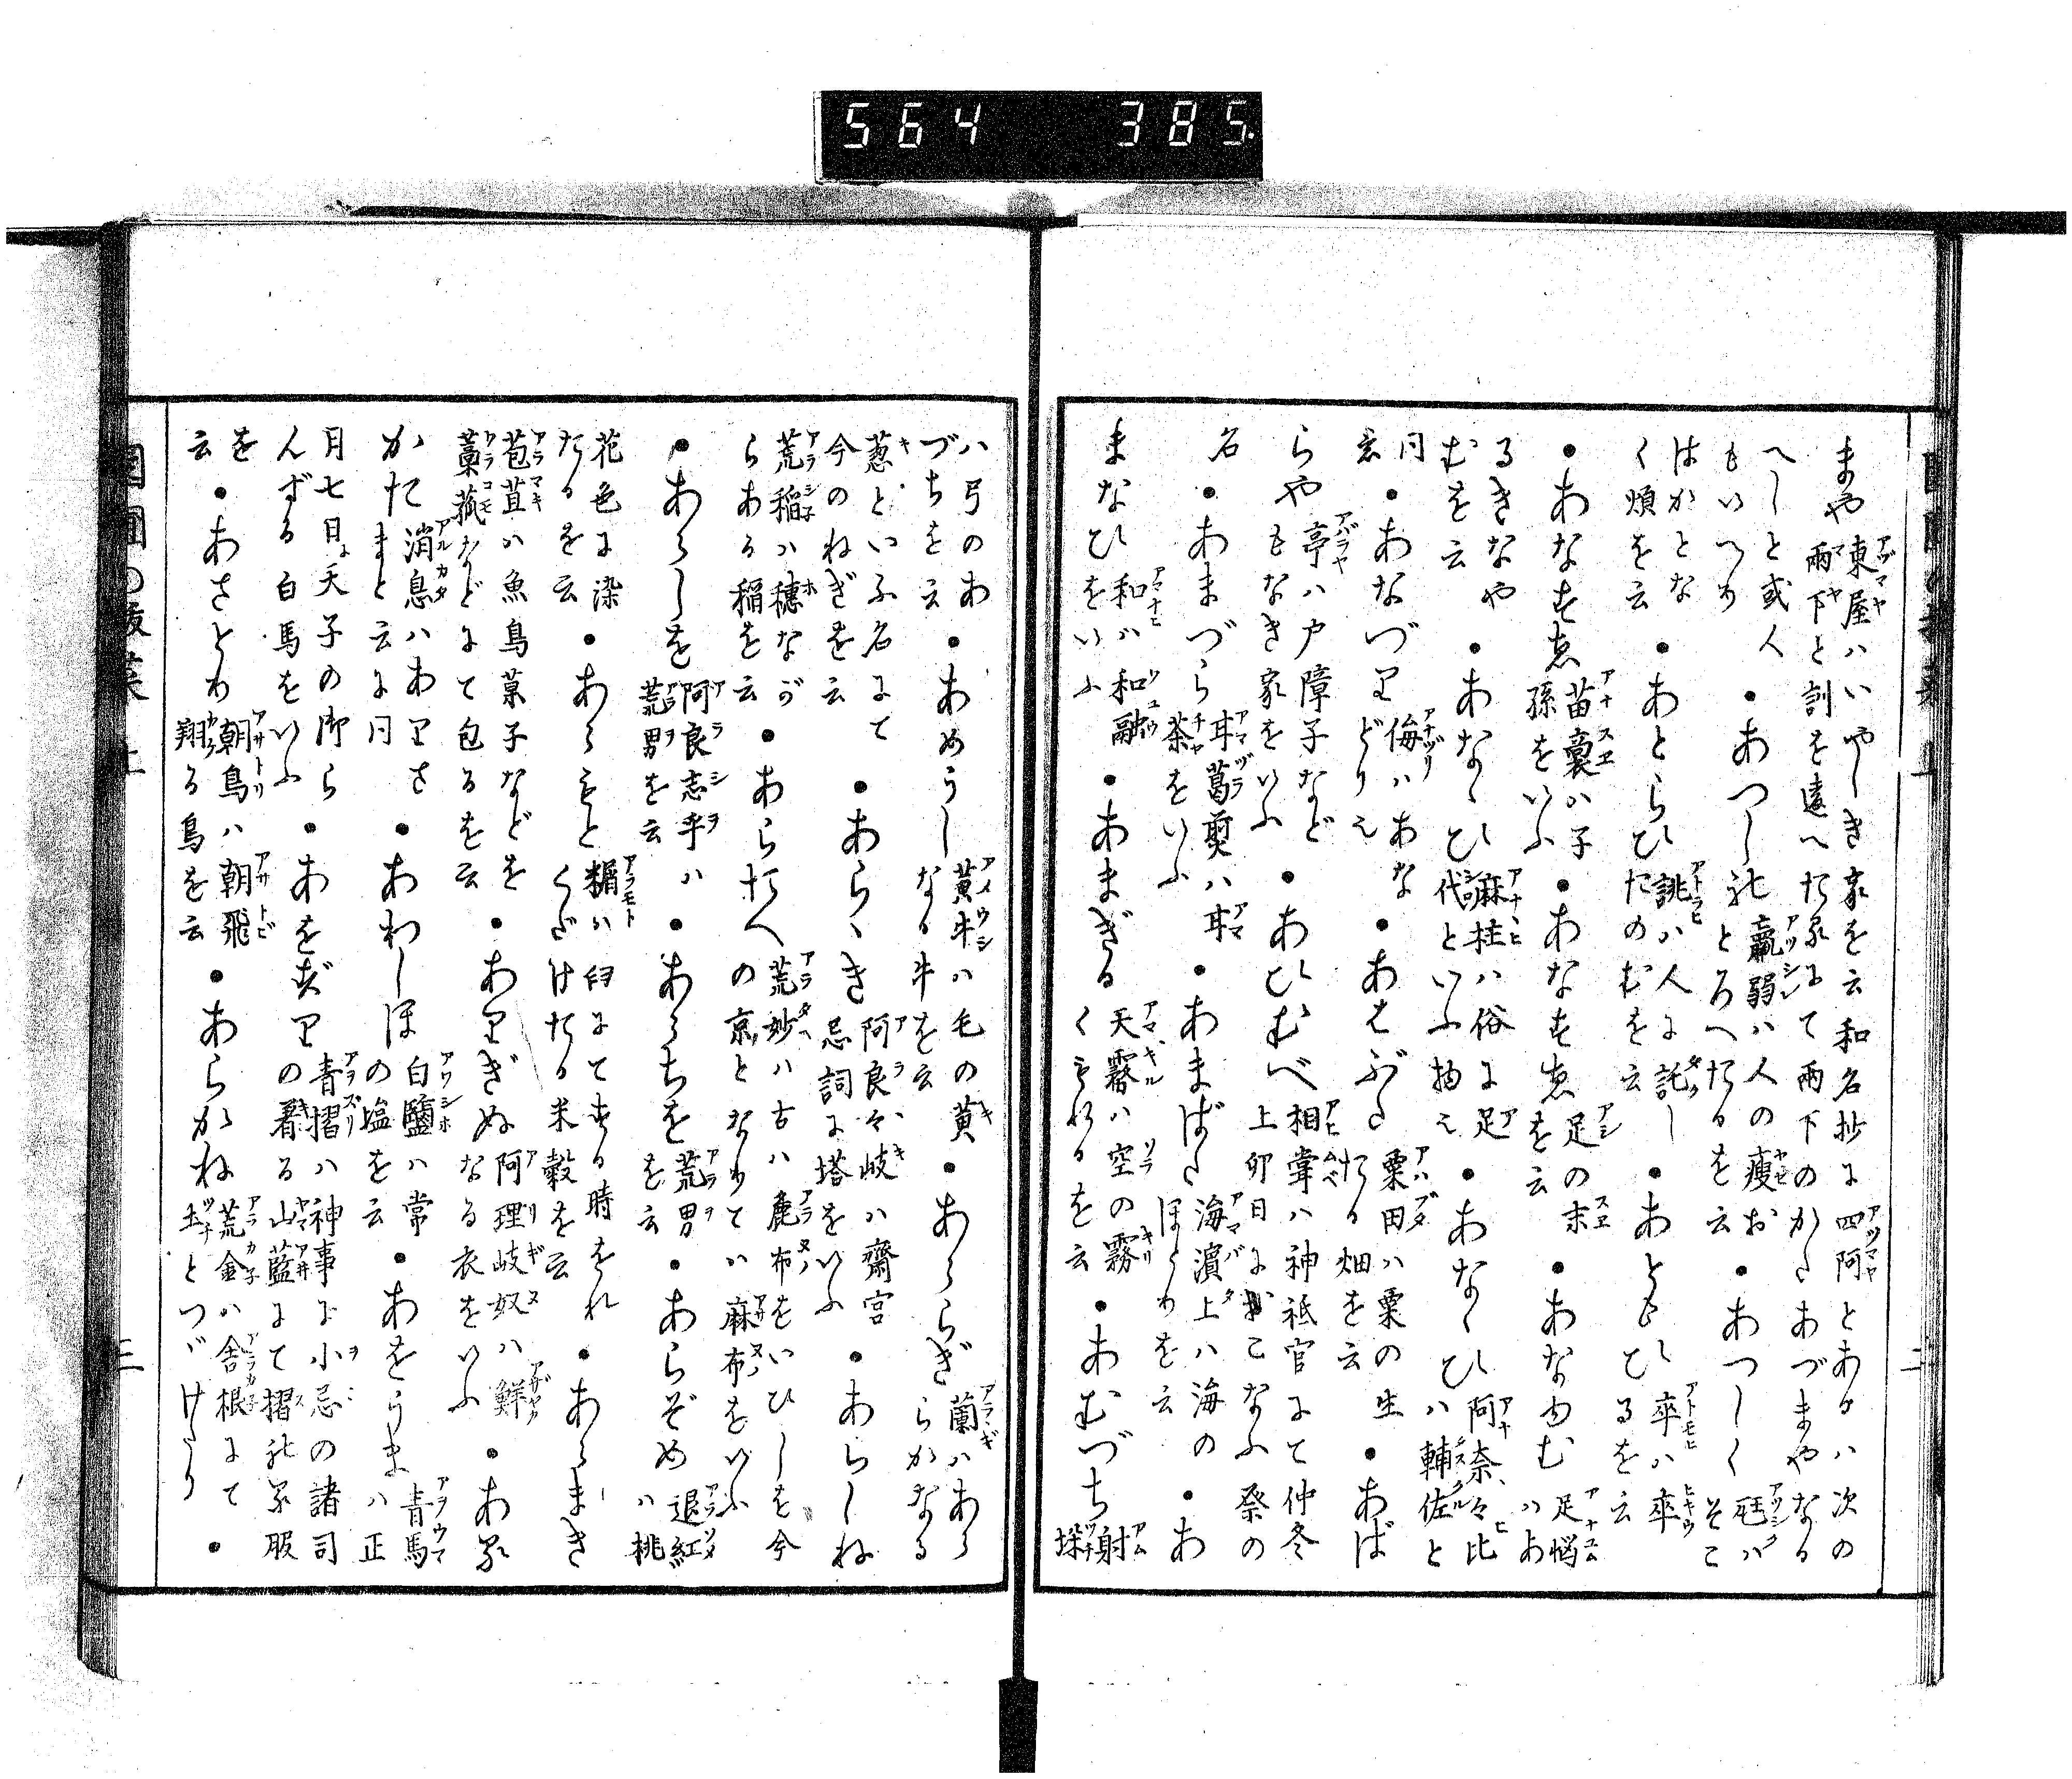 564 385
まや 東屋ハいやしき家を云和名抄に四阿とあるハ次の
雨下と訓を違へたるにて雨下のかたあづまやなる
へしと或人もいへり ・あつしれ 羸弱ハ人の痩おとろへたるを云 ・あつしく 〓ハそこ
はかとなく煩を云 ・あとらひ 誂ハ人に託したのむを云 ・あともひ 率ハ率るを云
・あなすゑ 苗裏ハ子孫をいふ ・あなすゑ 足の末を云 ・あなゆむ 足悩ハあ
るきなやむを云 ・あなゝひ 麻柱ハ俗に足代といふ物え ・あなゝひ 阿奈々比ハ輔佐と
同意 ・あなづり 侮ハあなどりえ ・あはぶた 粟田ハ粟の生たる畑を云 ・あば
らや 亭ハ戸障子などもなき家をいふ ・あひむべ 相甞ハ神祇官にて仲冬上卯日におこなふ祭の
名 ・あまづら 耳葛煎ハ耳茶をいふ ・あまばた 海濱上ハ海のほとりを云 ・あ
まなひ 和ハ和融をいふ ・あまぎる 天霧ハ空の霧くもれるを云 ・あむづち 射垜
ハ弓のあづちを云 ・あめうし 黄牛ハ毛の黄なる牛を云 ・あらゝぎ 蘭ハあらゝかなる
葱といふ名にて今のねぎを云 ・あらゝき 阿良々岐ハ齋宮忌詞に塔をいふ ・あらしね
荒稲ハ穂ながらある稲を云 ・あらたへ 荒妙ハ古ハ麁布をいひしを今の京となりてハ麻布をいふ
・あらしを 阿良志乎ハ荒男を云 ・あらちを 荒男を云 ・あらぞめ 退紅ハ桃
花色に染たるを云 ・あらもと 糏ハ臼にてする時をれくだけたる米穀を云 ・あらまき
苞苴ハ魚鳥菓子などを藁菰などにて包るを云 ・ありぎぬ 阿理岐奴ハ鮮なる衣をいふ ・ある
かた 消息ハありさまと云に同 ・あわしほ 白鹽ハ常の塩を云 ・あをうま 青馬ハ正
月七日に天子の御らんずる白馬をいふ ・あをずり 青摺ハ神事に小忌の諸司の着る山藍にて摺れる服
を云 ・あさとり 朝鳥ハ朝飛翔る鳥を云 ・あらかね 荒金ハ舎根にて土とつゞけたり ・